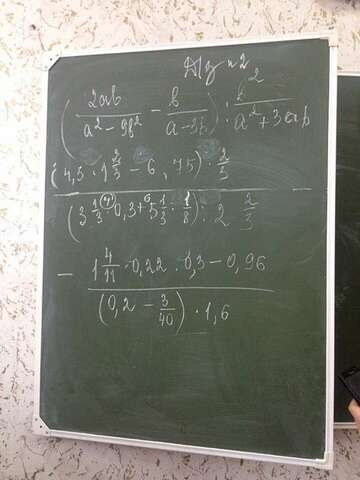 Д/з n2
(2ab/(a²-9b²) - b/(a-3b)) : b²/(a²+3ab)
(4,5 · 1 2/3 - 6,75) · 2/3
(3 1/3 · 0,3 + 5 1/3 · 1/8) : 2 2/3
- 1 4/11 · 0,22 : 0,3 - 0,96
(0,2 - 3/40) · 1,6